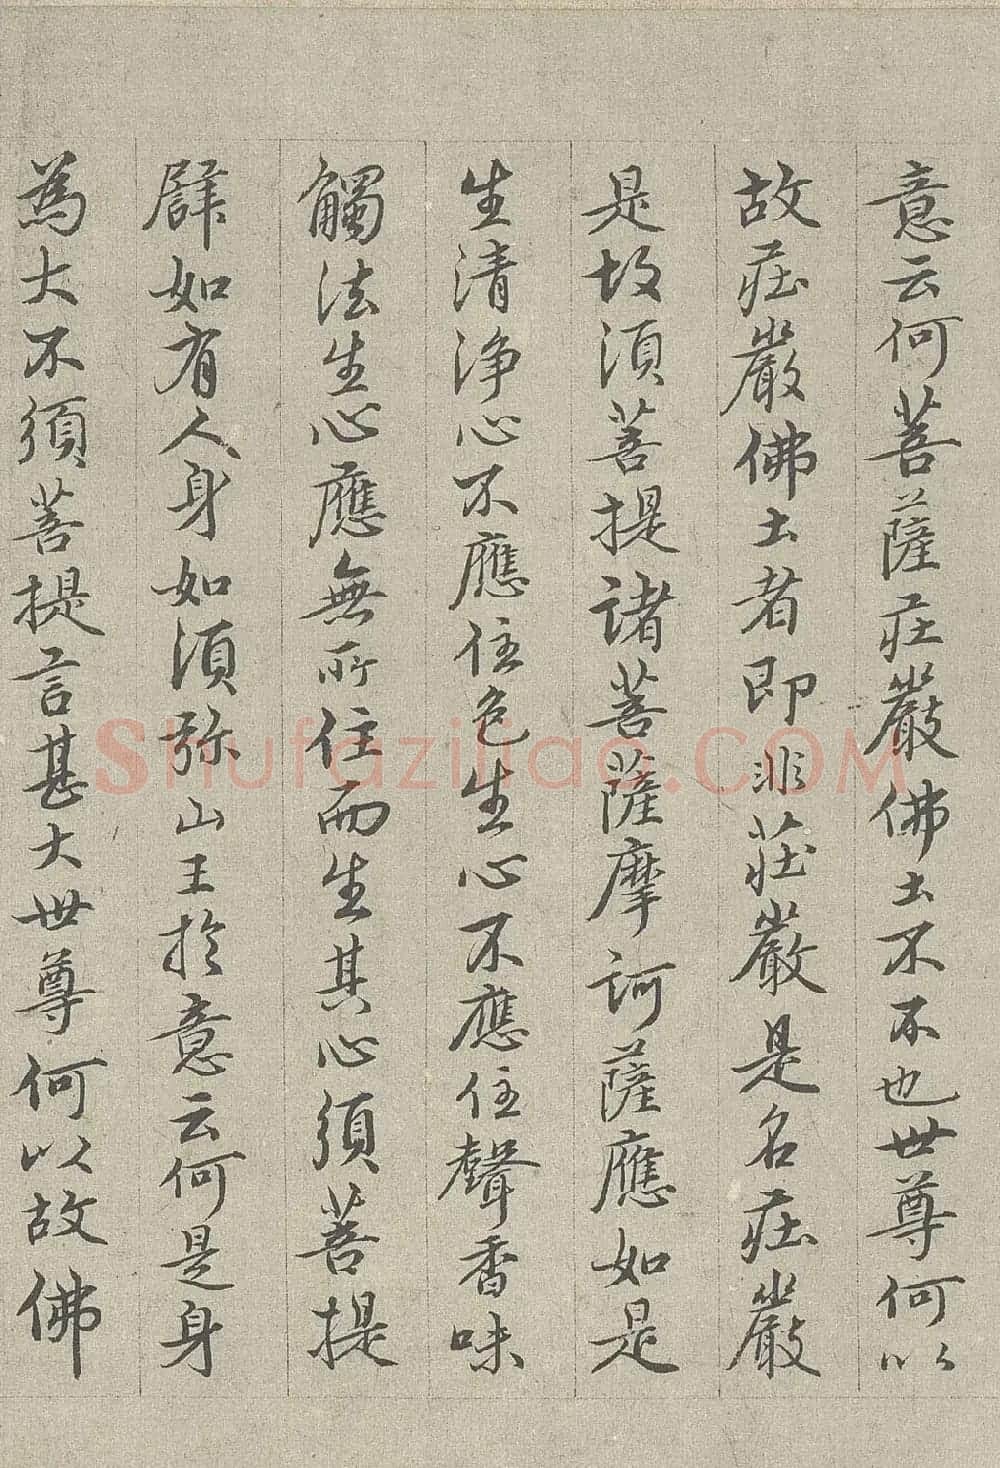 意云何菩薩莊嚴佛土不不也世尊何以
故莊嚴佛土者即非莊嚴是名莊嚴
是故須菩提諸菩薩摩訶薩應如是
生清淨心不應住色生心不應住聲香味
觸法生心應無所住而生其心須菩提
辟如有人身如須弥山王於意云何是身
為大不須菩提言甚大世尊何以故佛
Shufaziliao.COM